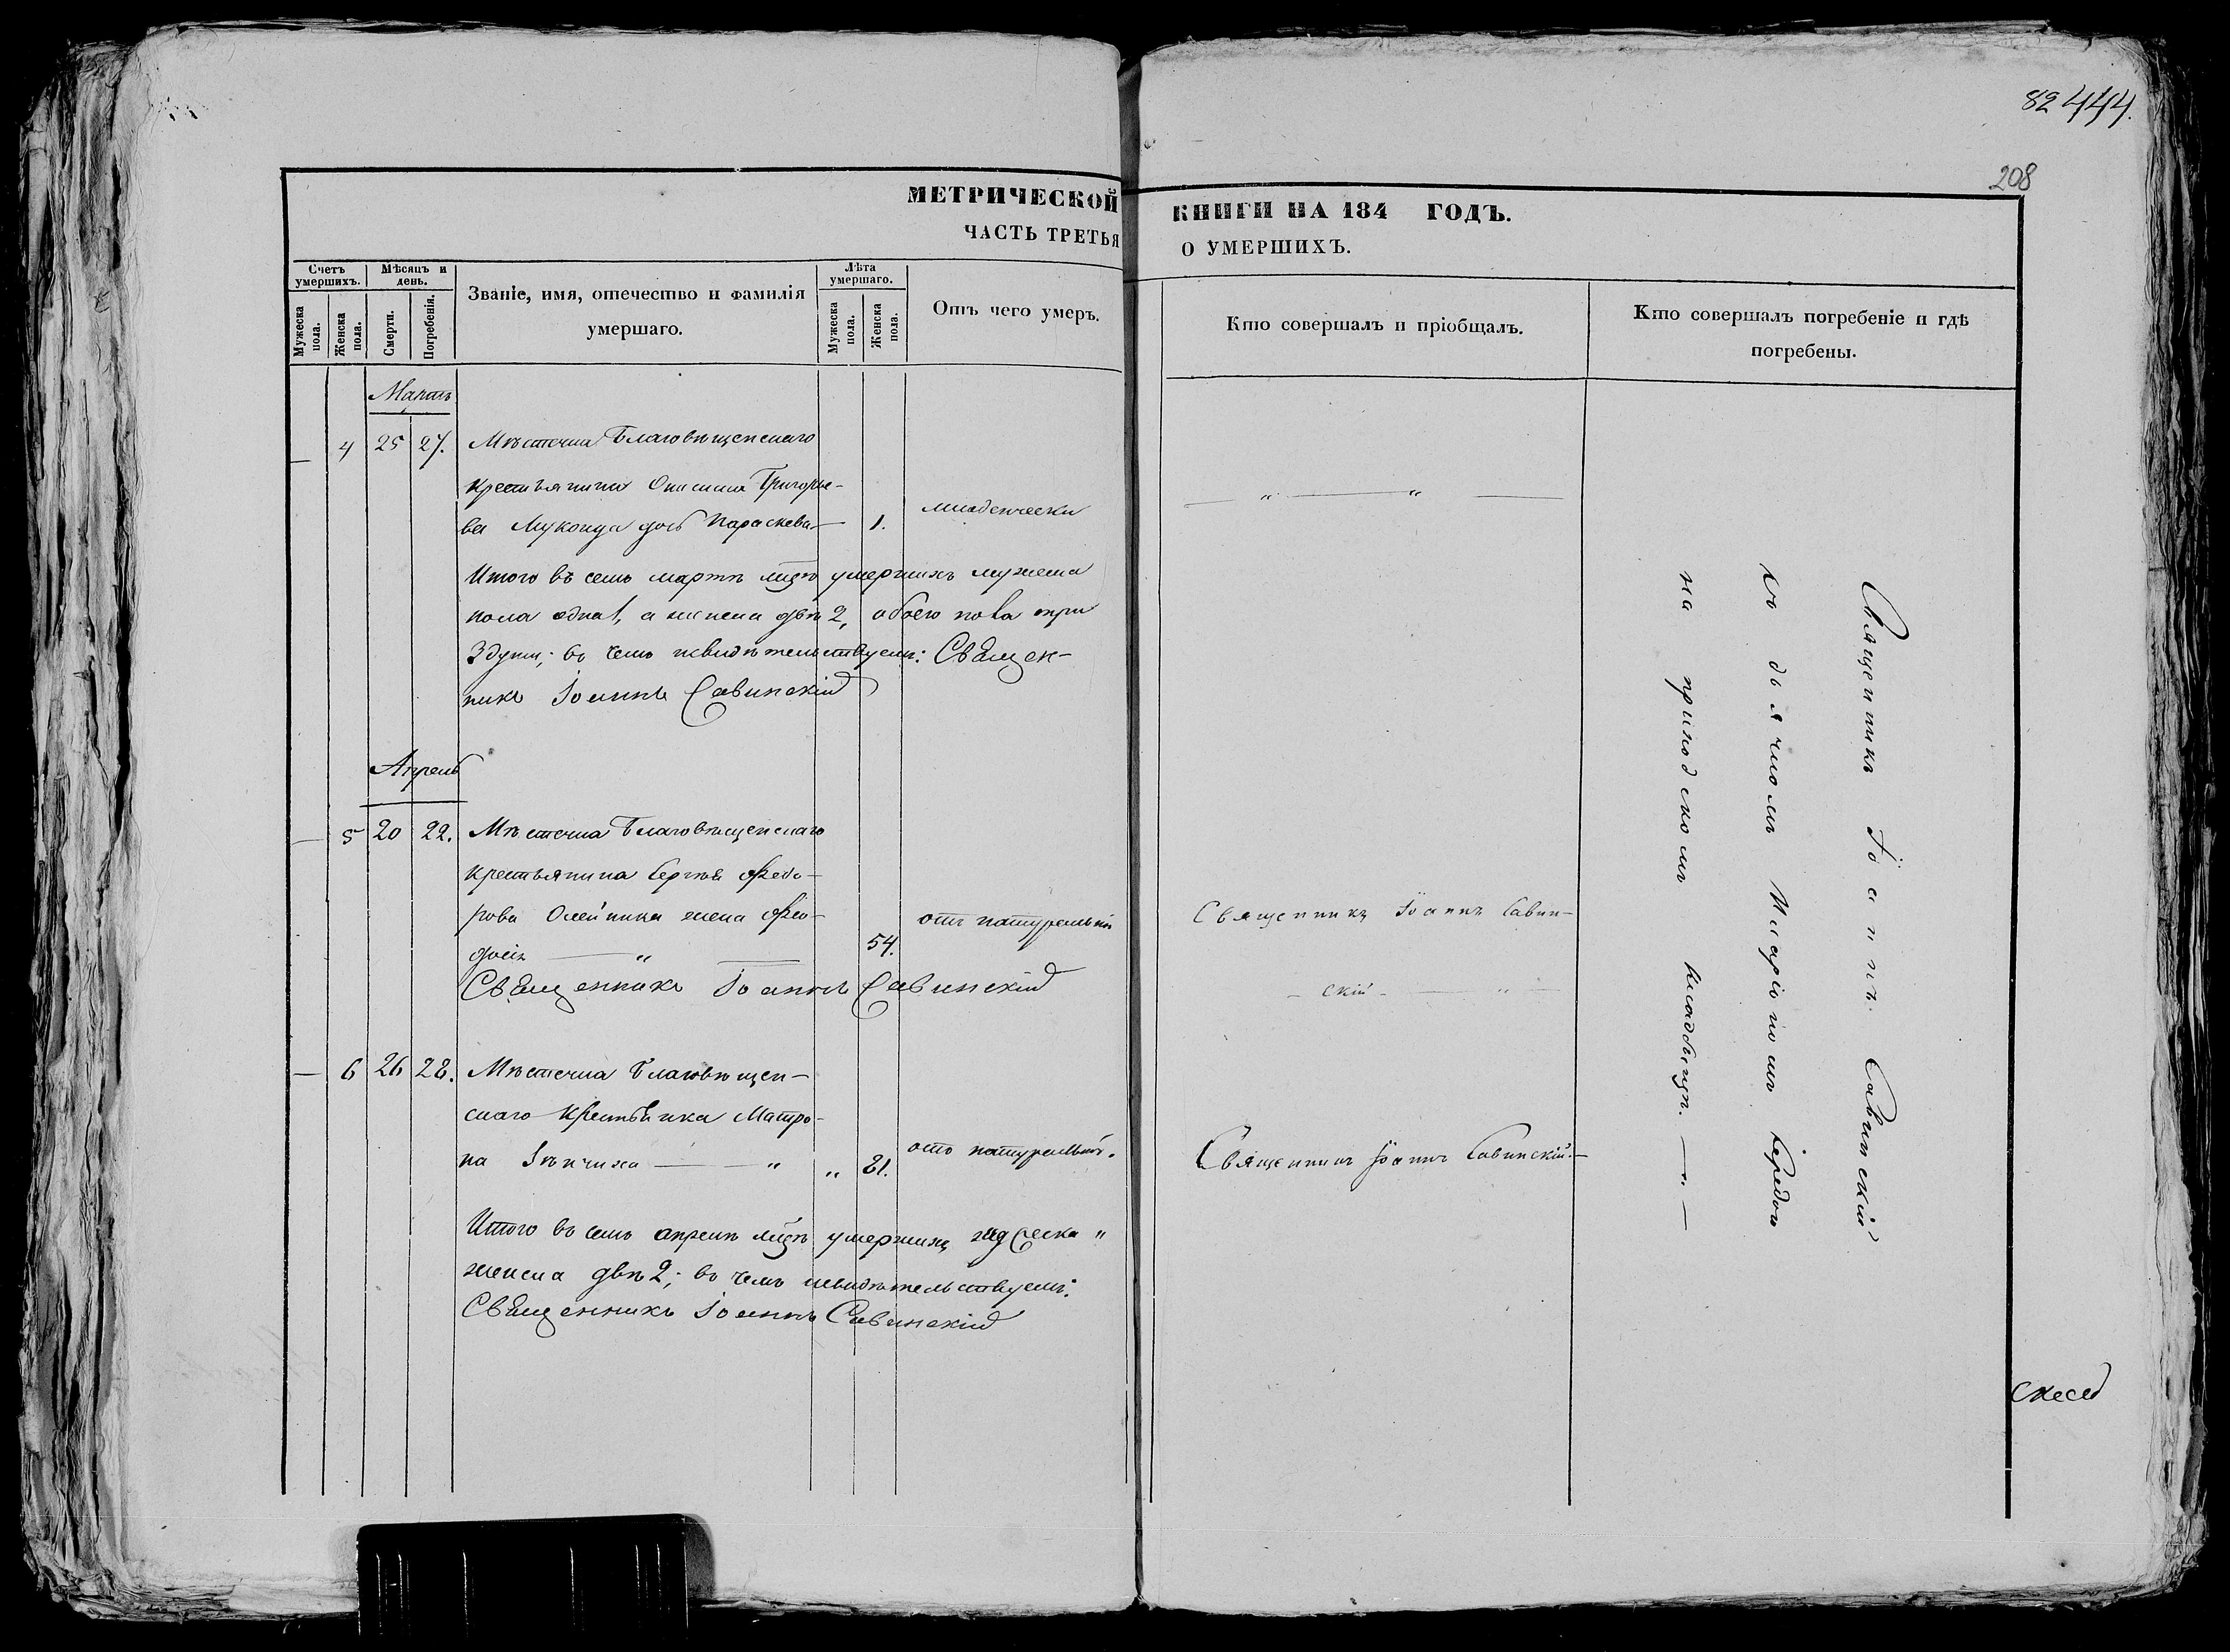 82 444.
208
МЕТРИЧЕСКОЙ КНИГИ НА 184 ГОДЪ.
ЧАСТЬ ТРЕТЬЯ О УМЕРШИХЪ.
Счетъ умершихъ.
Мужеска пола.
Женска пола.
Мѣсяцъ и день.
Смерти.
Погребенія.
Званіе, имя, отечество и фамилія умершаго.
Лѣта умершаго.
Мужеска пола.
Женска пола.
Отъ чего умеръ.
Кто совершалъ и пріобщалъ.
Кто совершалъ погребеніе и гдѣ погребены.
Мартъ
— 4 25 27. Мѣстечка Благовѣщенскаго
крестьянина Онисима Григорье-
ва дочь Параскева — 1. младенчески
— „ — „ —
Итого въ семъ мартѣ мцѣ умершихъ мужеска
пола одна 1, а женска двѣ 2, обоего пола три
3 души; въ чемъ свидѣтельствуемъ: Священ-
никъ Іоаннъ Савинскій
Апрель
— 5 20 22. Мѣстечка Благовѣщенскаго
крестьянина Сергѣя Федо-
рова Олейника жена Фео-
досія — „ — 54. отъ натуральной
Священникъ Іоаннъ Савин-
- скій - — „ —
Священникъ Іоаннъ Савинскій
— 6 26 28. Мѣстечка Благовѣщен-
скаго Крестьянка Матро-
на — „ „ 81. отъ натуральной.
Священникъ Іоаннъ Савинскій —
Итого въ семъ апрелѣ мцѣ умершихъ мужеска „
женска двѣ 2; въ чемъ свидѣтельствуемъ:
Священникъ Іоаннъ Савинскій
Священникъ Іоаннъ Савинскій
съ дьячкомъ Иларіономъ
на приходскомъ кладбищѣ. — „ —